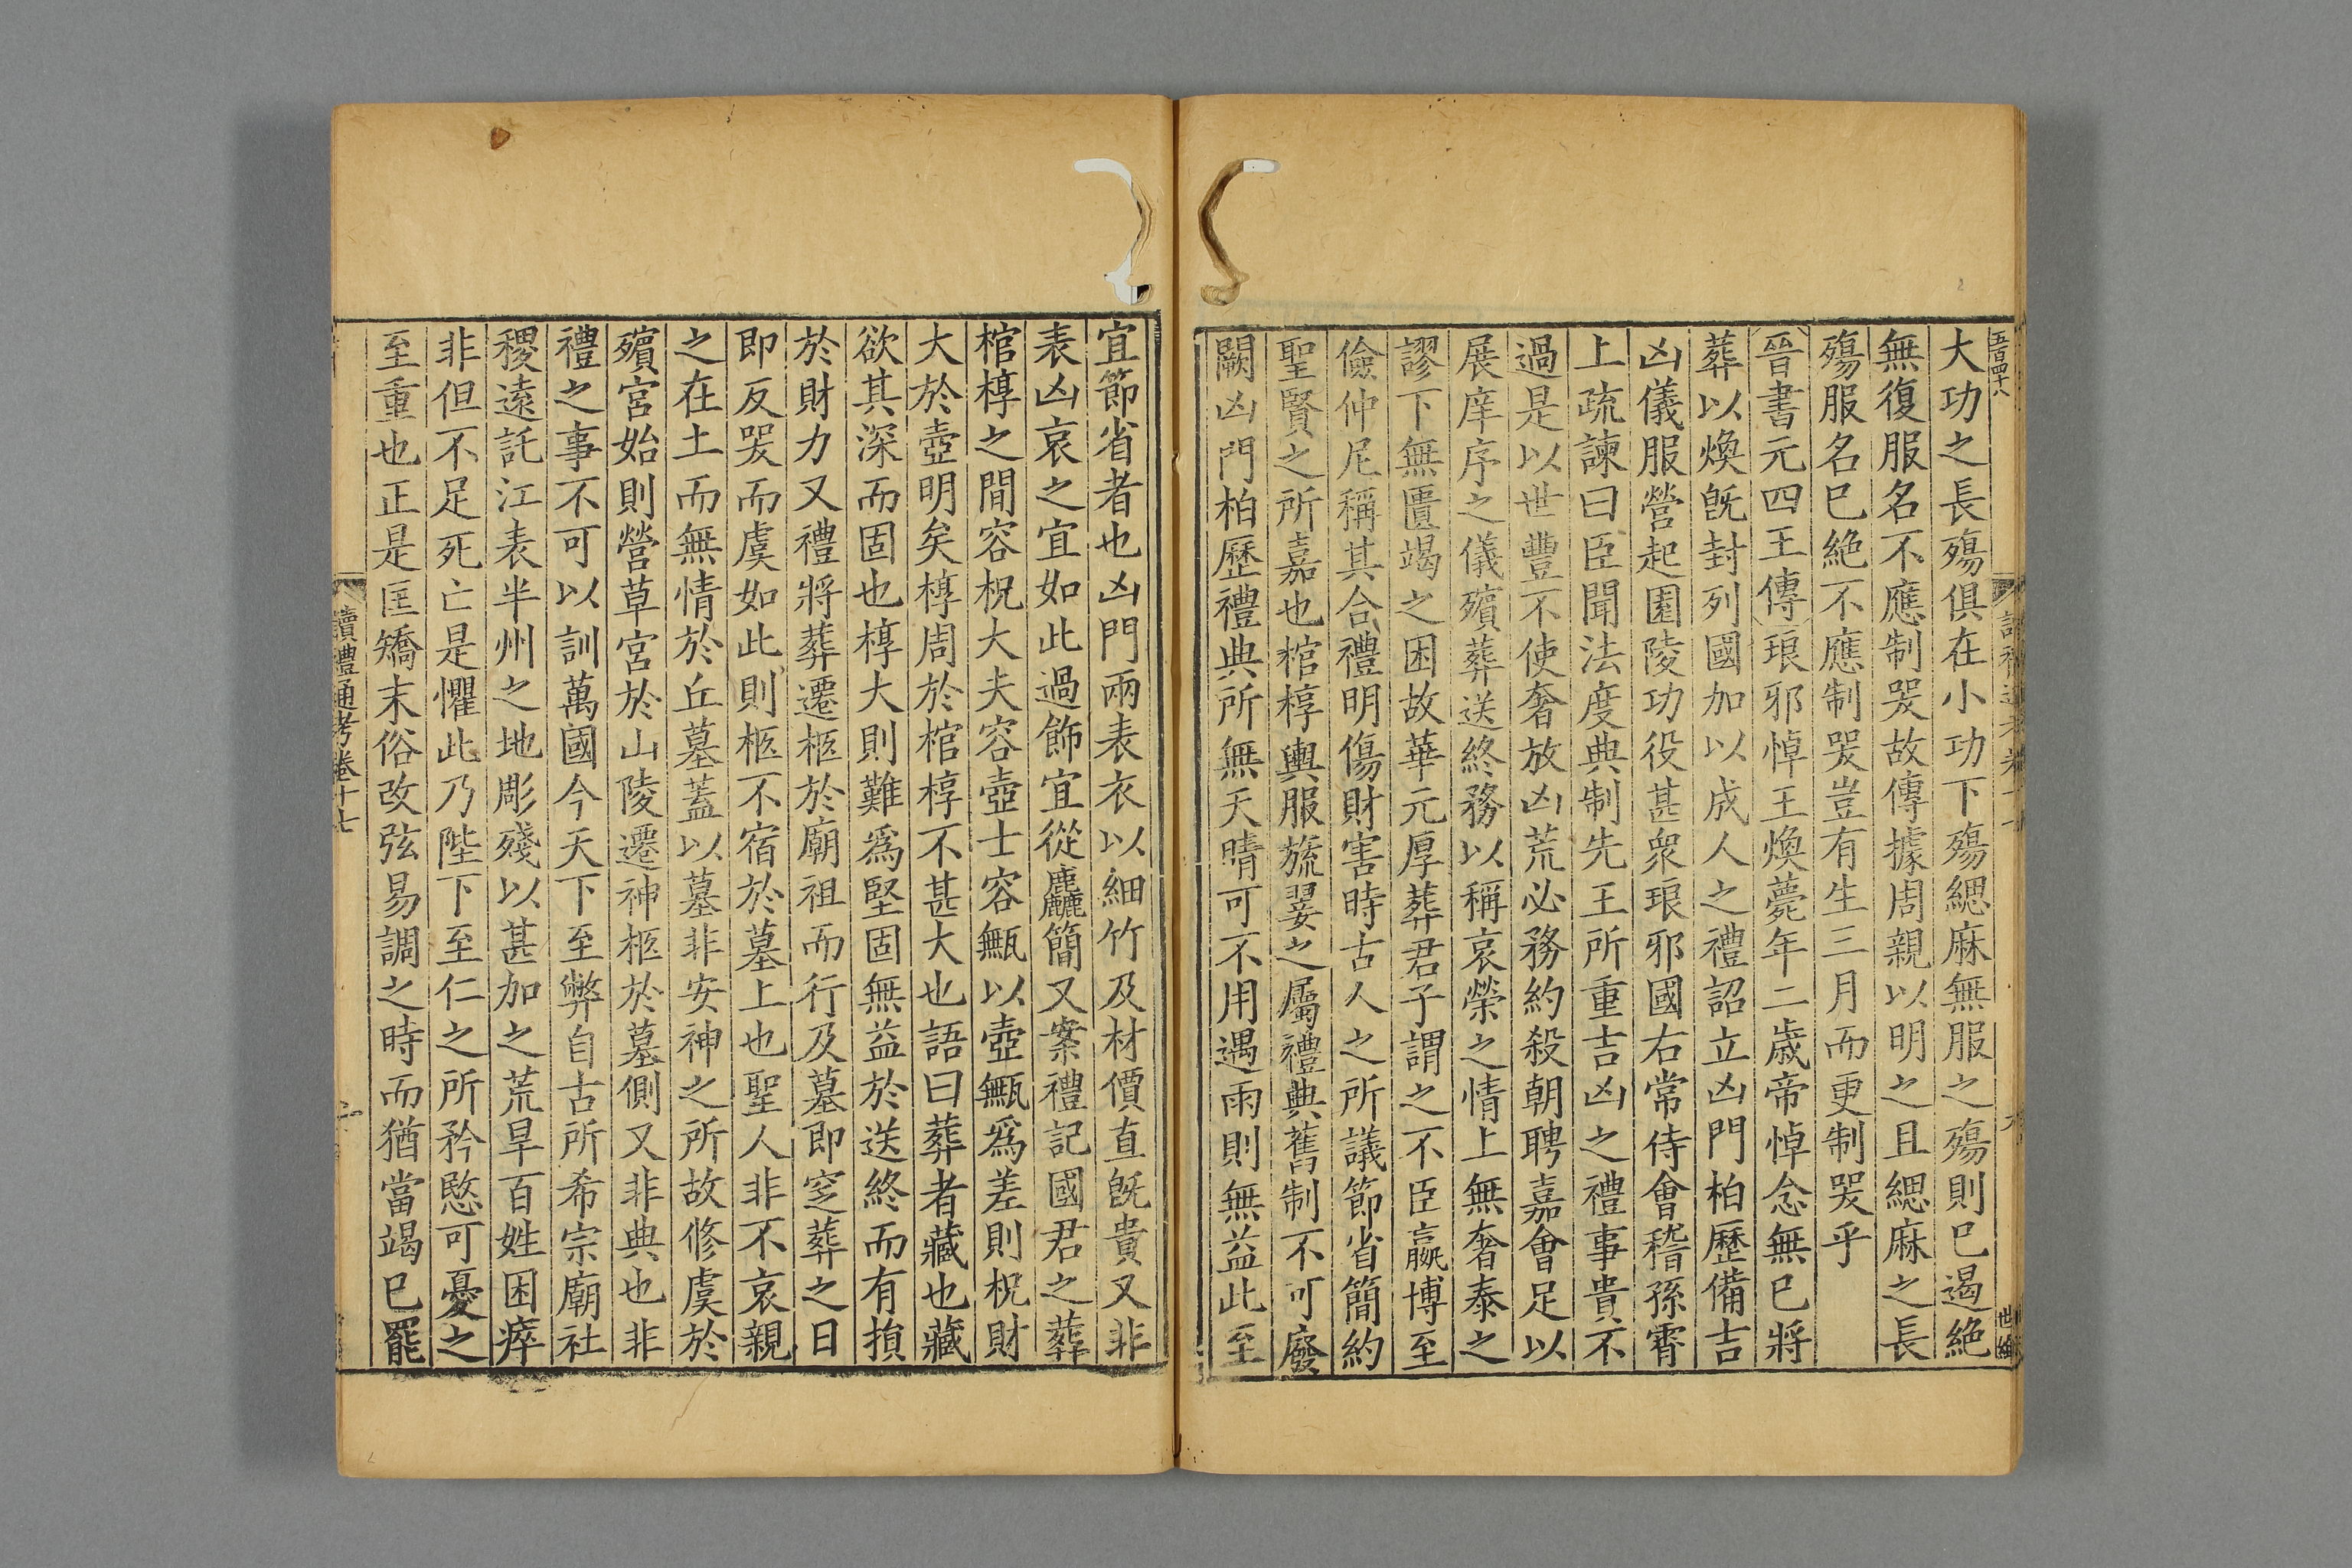 五百四十八
大功之長殤俱在小功下殤緦麻無服之殤則巳遏絶
無復服名不應制哭故傳據周親以明之且緦麻之長
殤服名巳絶不應制哭豈有生三月而更制哭乎
晉書元四王傳琅邪悼王煥薨年二歲帝悼念無巳將
葬以煥旣封列國加以成人之禮詔立凶門柏歷備吉
凶儀服營起園陵功役甚衆琅邪國右常侍會稽孫霄
上疏諫曰臣聞法度典制先王所重吉凶之禮事貴不
過是以世豐不使奢放凶荒必務約殺朝聘嘉會足以
展庠序之儀殯葬送終務以稱哀榮之情上無奢泰之
謬下無匱竭之困故華元厚葬君子謂之不臣嬴博至
儉仲尼稱其合禮明傷財害時古人之所議節省簡約
聖賢之所嘉也棺椁輿服旒翣之屬禮典舊制不可廢
闕凶門柏歷禮典所無天晴可不用遇雨則無益此至
宜節省者也凶門兩表衣以細竹及材價直旣貴又非
表凶哀之宜如此過飾宜從麤簡又案禮記國君之葬
棺椁之間容柷大夫容壺士容甒以壺甒爲差則柷財
大於壺明矣椁周於棺椁不甚大也語曰葬者藏也藏
欲其深而固也椁大則難爲堅固無益於送終而有損
於財力又禮將葬遷柩於廟祖而行及墓即窆葬之日
即反哭而虞如此則柩不宿於墓上也聖人非不哀親
之在土而無情於丘墓蓋以墓非安神之所故修虞於
殯宮始則營草宮於山陵遷神柩於墓側又非典也非
禮之事不可以訓萬國今天下至弊自古所希宗廟社
稷遠託江表半州之地彫殘以甚加之荒旱百姓困瘁
非但不足死亡是懼此乃陛下至仁之所矜愍可憂之
至重也正是匡矯末俗改弦易調之時而猶當竭巳罷
讀禮通考卷十七